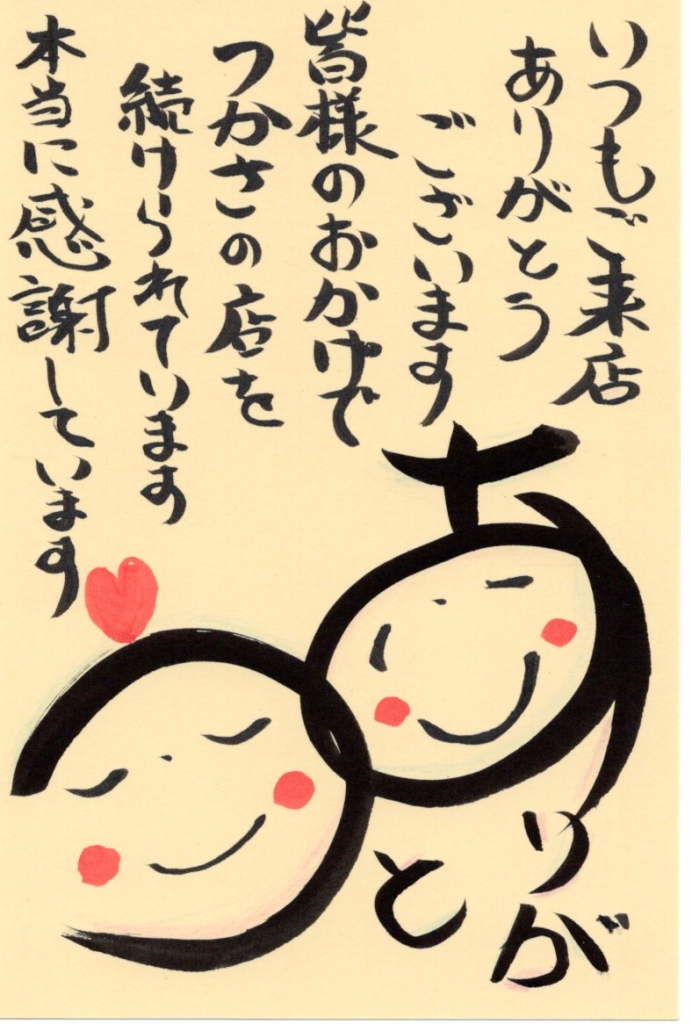 いつもご来店
ありがとう
ございます
皆様のおかげで
つかさの店を
続けられています
本当に感謝しています
あ
りが
と
う